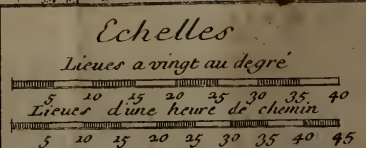 Echelles
Lieues a vingt au degré
5 10 15 20 25 30 35 40
Lieues d'une heure de chemin
5 10 15 20 25 30 35 40 45